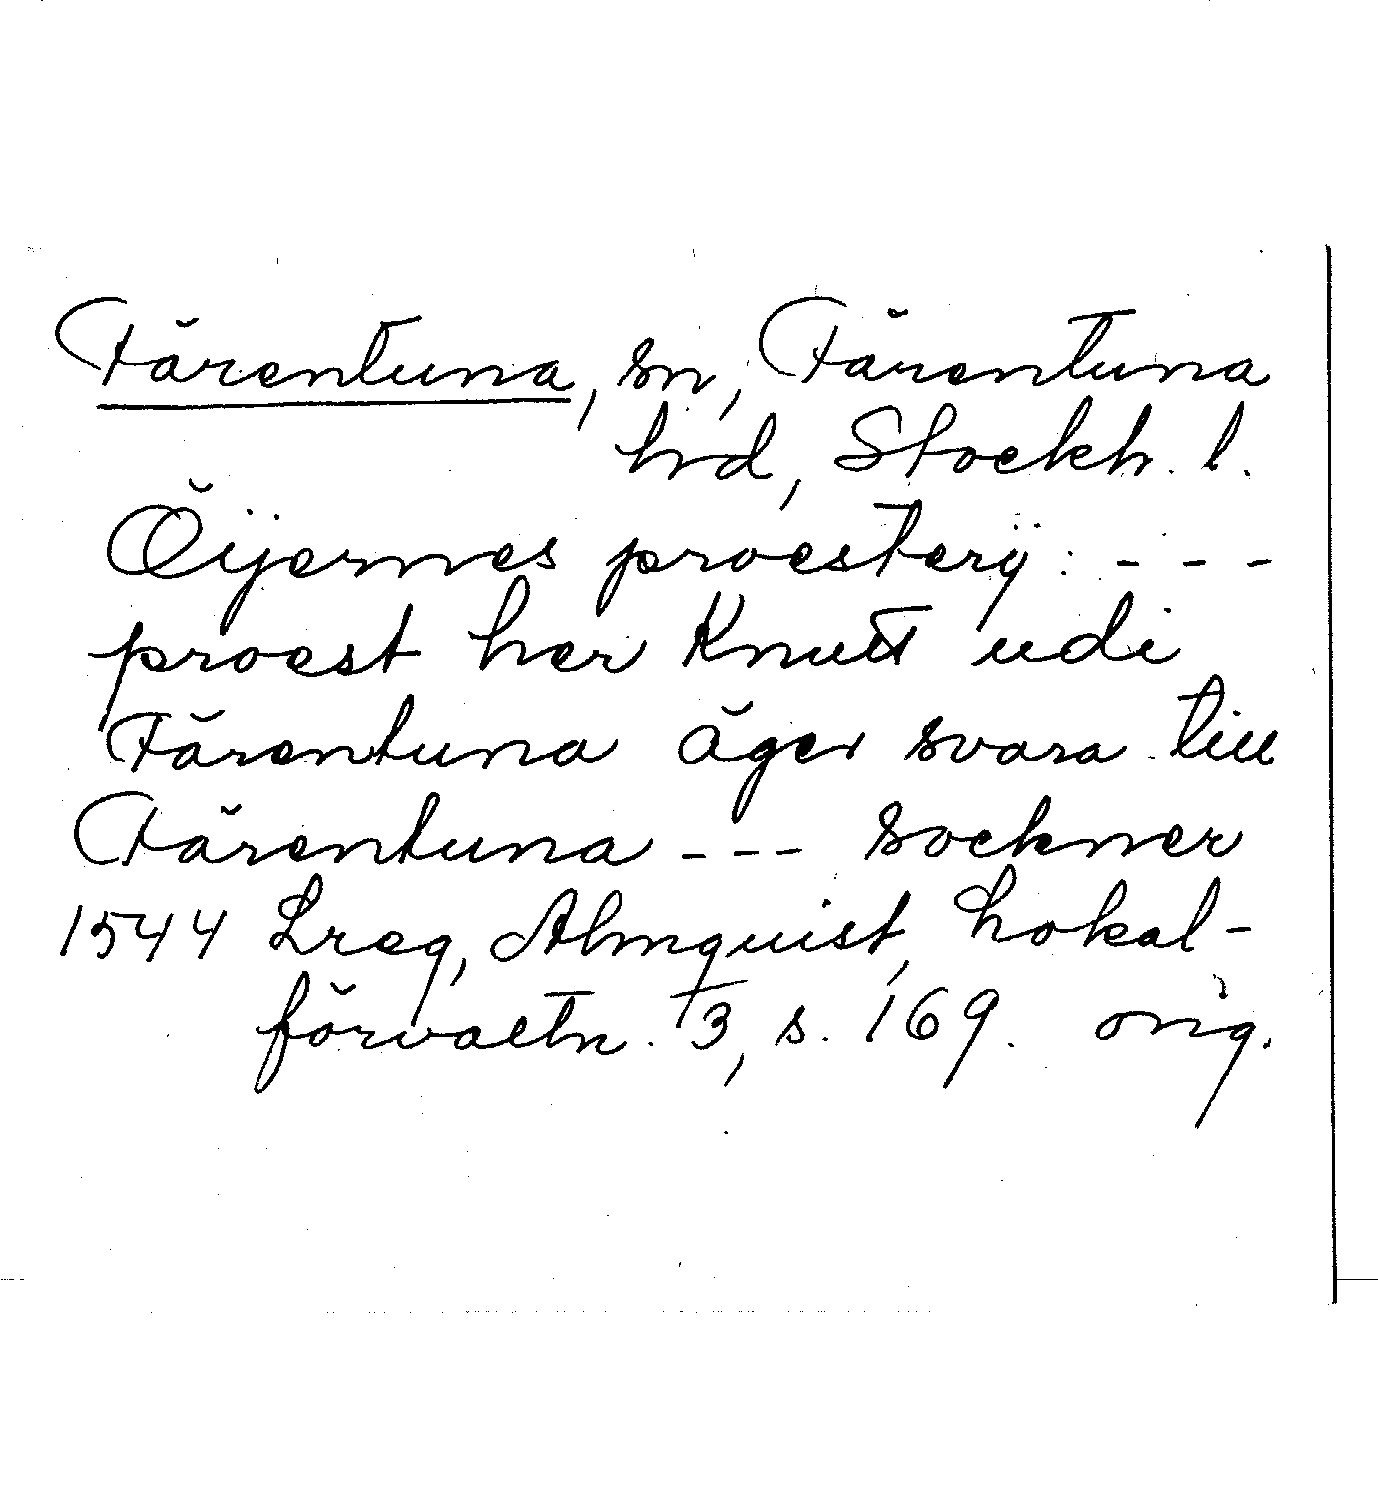 Färentuna, sn, Färentuna
hrd, Stockh. l.
Öijernes proesterÿ: - - -
proest her Knutt udi
Färentuna äger svara till
Färentuna - - - sockner
1544 Lreg, Almquist, Lokal-
förvaltn. 73, s. 169. orig.